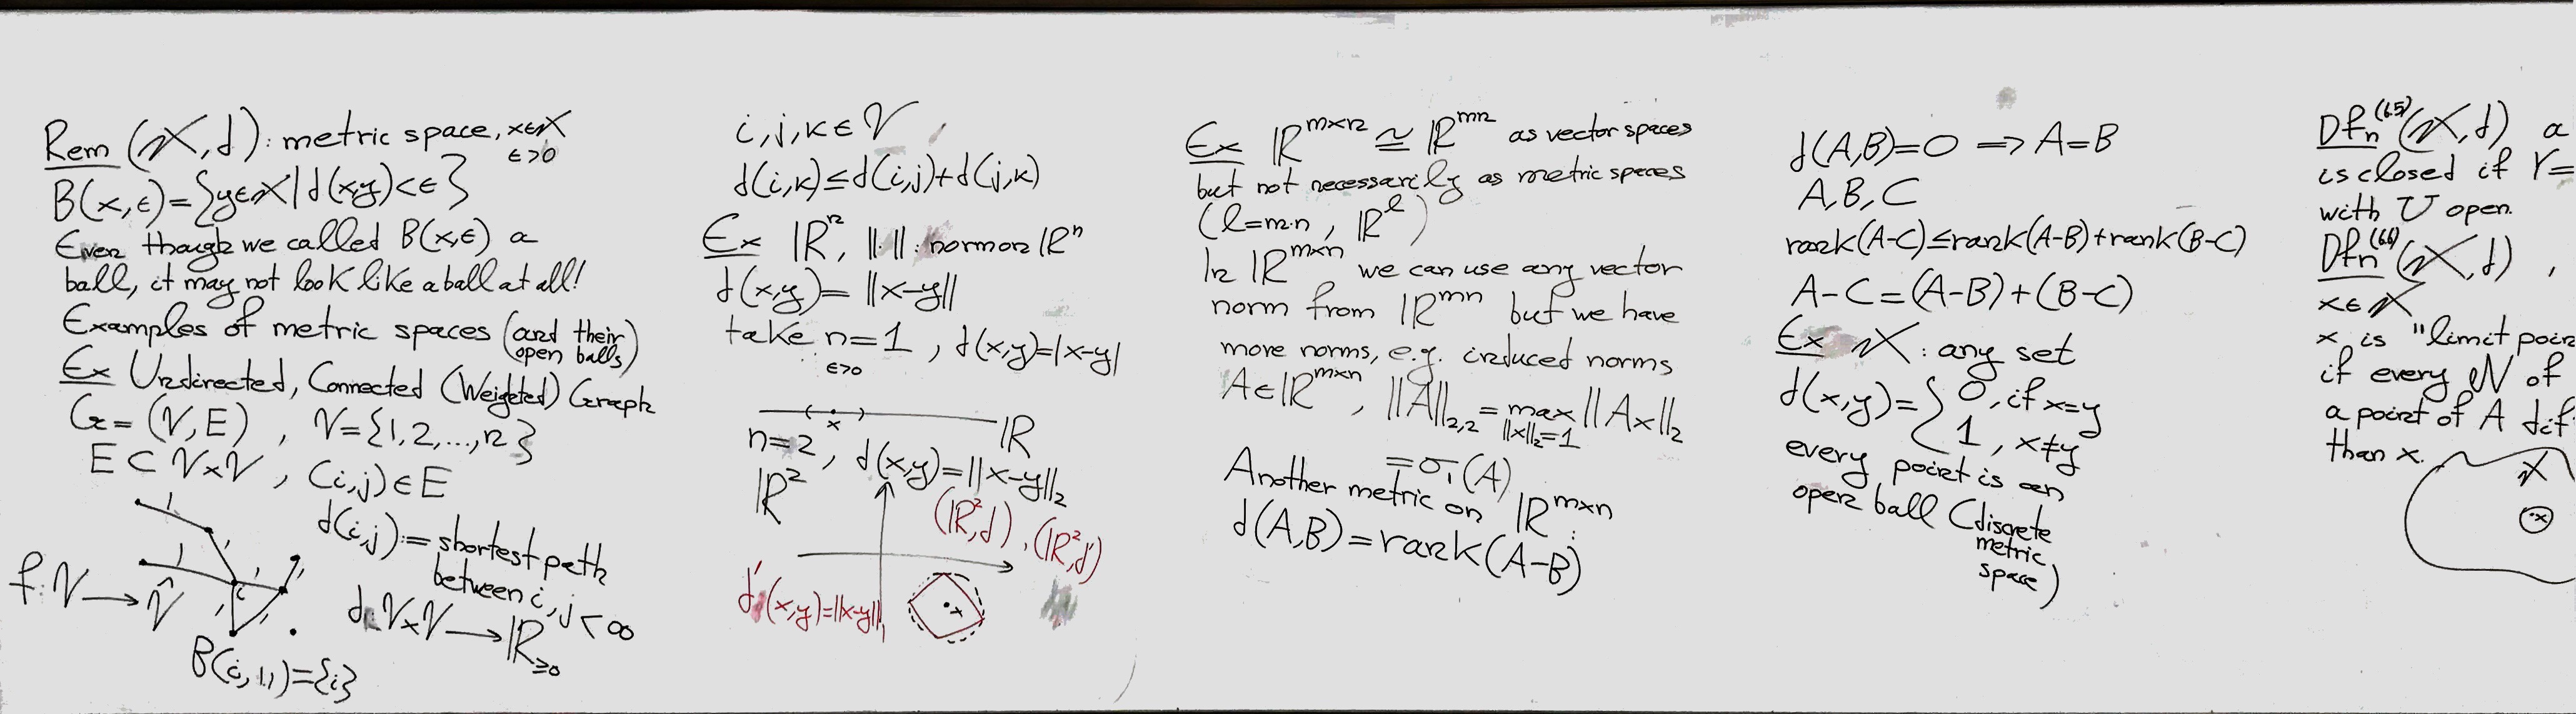 Rem (X,d): metric space, x∈X
ϵ>0
B(x,ϵ)={y∈X|d(x,y)<ϵ}
Even though we called B(x,ϵ) a
ball, it may not look like a ball at all!
Examples of metric spaces (and their
open balls)
Ex Undirected, Connected (Weighted) Graph
G=(V,E) , V={1,2,...,n}
E⊂V×V , (i,j)∈E
d(i,j):=shortest path
between i,j<∞
f:V→V̂
d:V×V→ℝ≥0
B(i,1)={i}
i,j,k∈V
d(i,k)≤d(i,j)+d(j,k)
Ex ℝⁿ, ||·||: norm on ℝⁿ
d(x,y)=||x-y||
take n=1, d(x,y)=|x-y|
ϵ>0
x
ℝ
n=2, d(x,y)=||x-y||₂
ℝ²
(ℝ²,d), (ℝ²,d')
d'(x,y)=||x-y||₁
x
Ex ℝᵐˣⁿ ≅ ℝᵐⁿ as vector spaces
but not necessarily as metric spaces
(l=m·n, ℝˡ)
In ℝᵐˣⁿ we can use any vector
norm from ℝᵐⁿ but we have
more norms, e.g. induced norms
A∈ℝᵐˣⁿ, ||A||₂,₂=max ||Ax||₂
||x||₂=1
=σ₁(A)
Another metric on ℝᵐˣⁿ:
d(A,B)=rank(A-B)
d(A,B)=0 ⇒ A=B
A,B,C
rank(A-C)≤rank(A-B)+rank(B-C)
A-C=(A-B)+(B-C)
Ex X: any set
d(x,y)={0, if x=y
1, x≠y
every point is an
open ball (discrete
metric
space)
Dfn (6.5) (X,d) a
is closed if Y=
with U open.
Dfn (6.6) (X,d),
x∈X
x is "limit poin
if every N of
a point of A dif
than x.
X
x